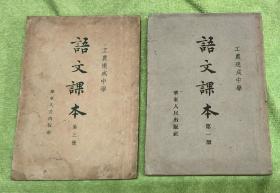 工農速成中學
語文課本
第三冊
華東人民出版社
工農速成中學
語文課本
第一冊
華東人民出版社